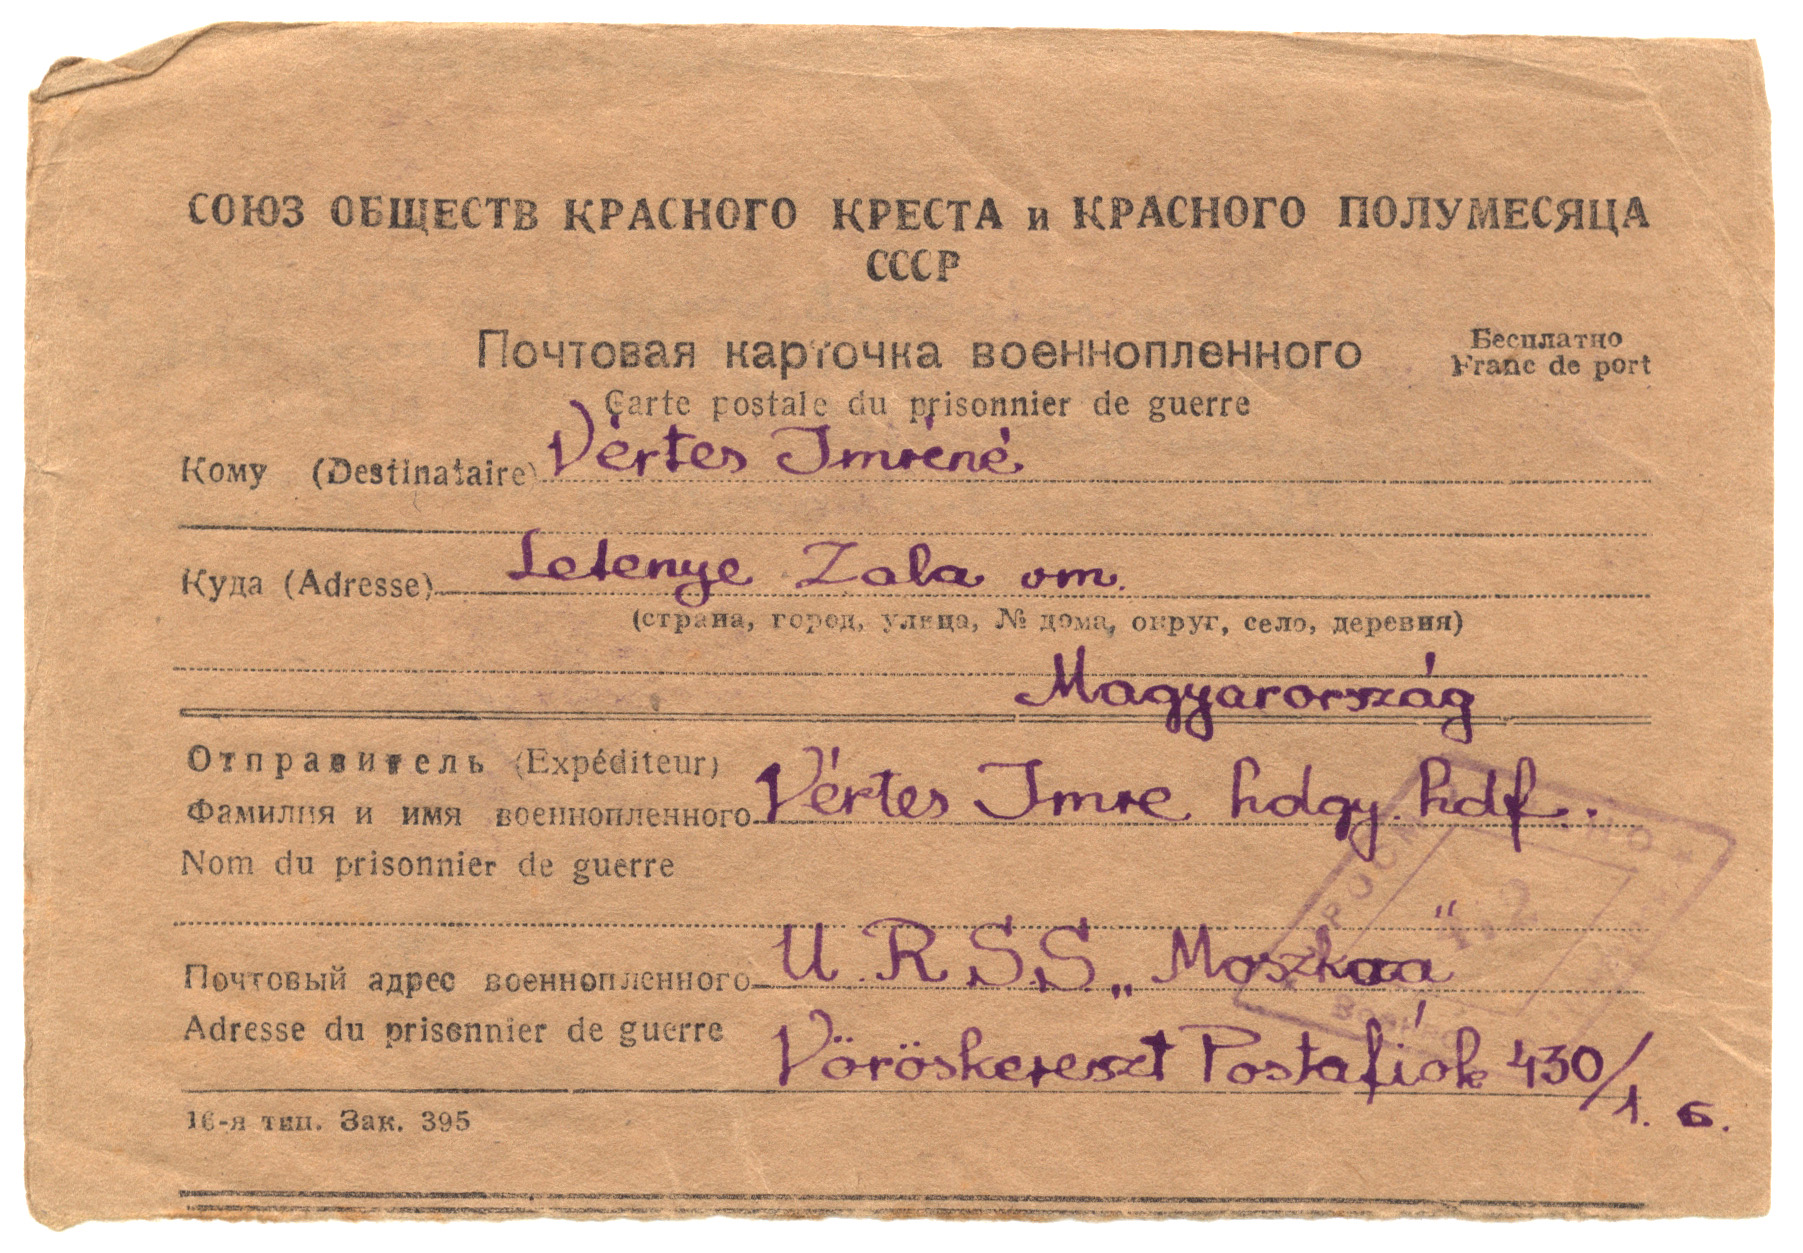 СОЮЗ ОБЩЕСТВ КРАСНОГО КРЕСТА и КРАСНОГО ПОЛУМЕСЯЦА
СССР
Почтовая карточка военнопленного
Бесплатно
Franc de port
Carte postale du prisonnier de guerre
Кому (Destinataire) Vértes Imréné
Куда (Adresse) Letenye Zala vm.
(страна, город, улица, № дома, округ, село, деревня)
Magyarország
Отправитель (Expéditeur)
Фамилия и имя военнопленного Vértes Imre hdgy. hdf.
Nom du prisonnier de guerre
Почтовый адрес военнопленного U.R.S.S. „Moszkva"
Adresse du prisonnier de guerre Vöröskereszt Postafiók 430/1. Б.
16-я тип. Зак. 395